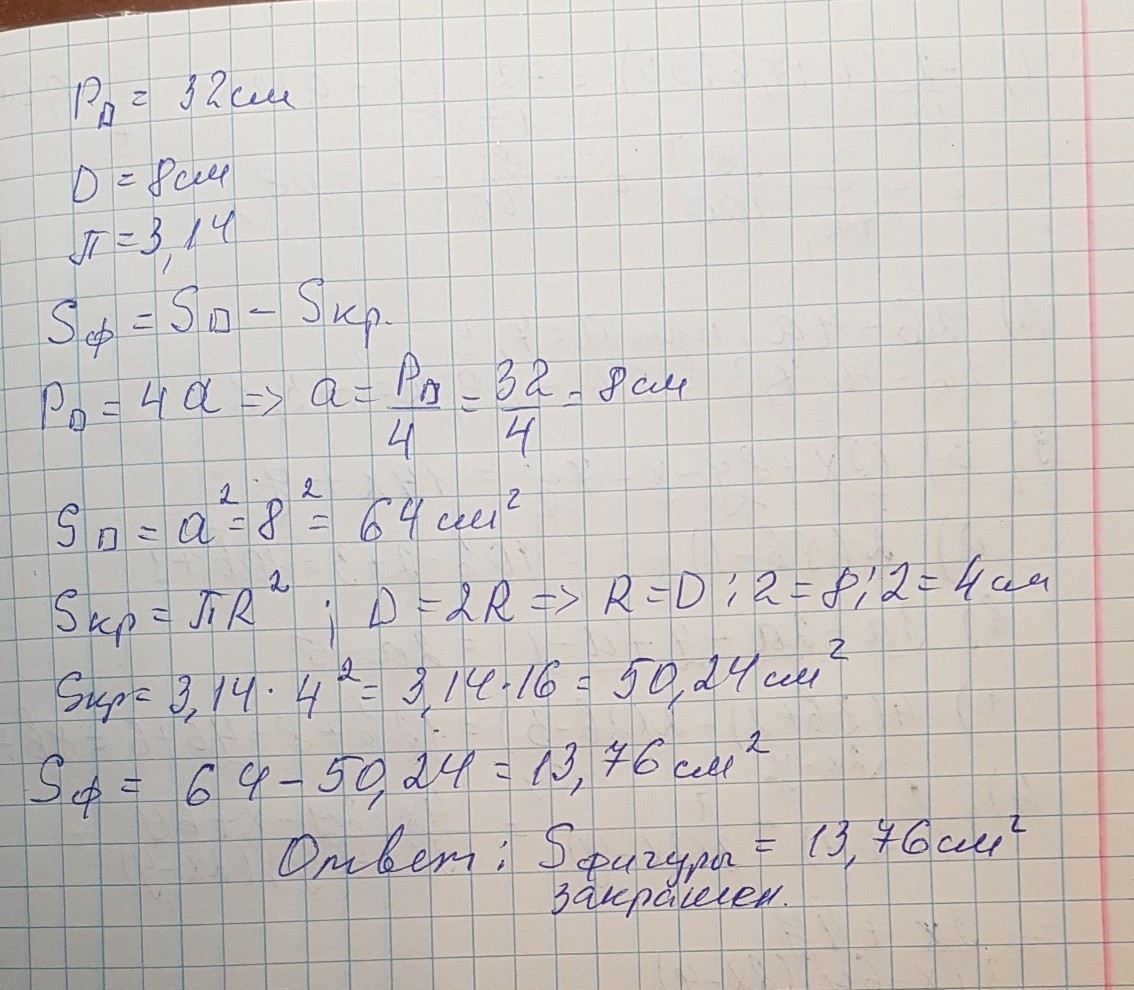 P□ = 32 см
D = 8 см
π = 3,14
Sф = S□ - Sкр.
P□ = 4a => a = P□/4 = 32/4 = 8 см
S□ = a² = 8² = 64 см²
Sкр = πR² ; D = 2R => R = D : 2 = 8 : 2 = 4 см
Sкр = 3,14 · 4² = 3,14 · 16 = 50,24 см²
Sф = 64 - 50,24 = 13,76 см²
Ответ : Sфигуры = 13,76 см²
закрашен.